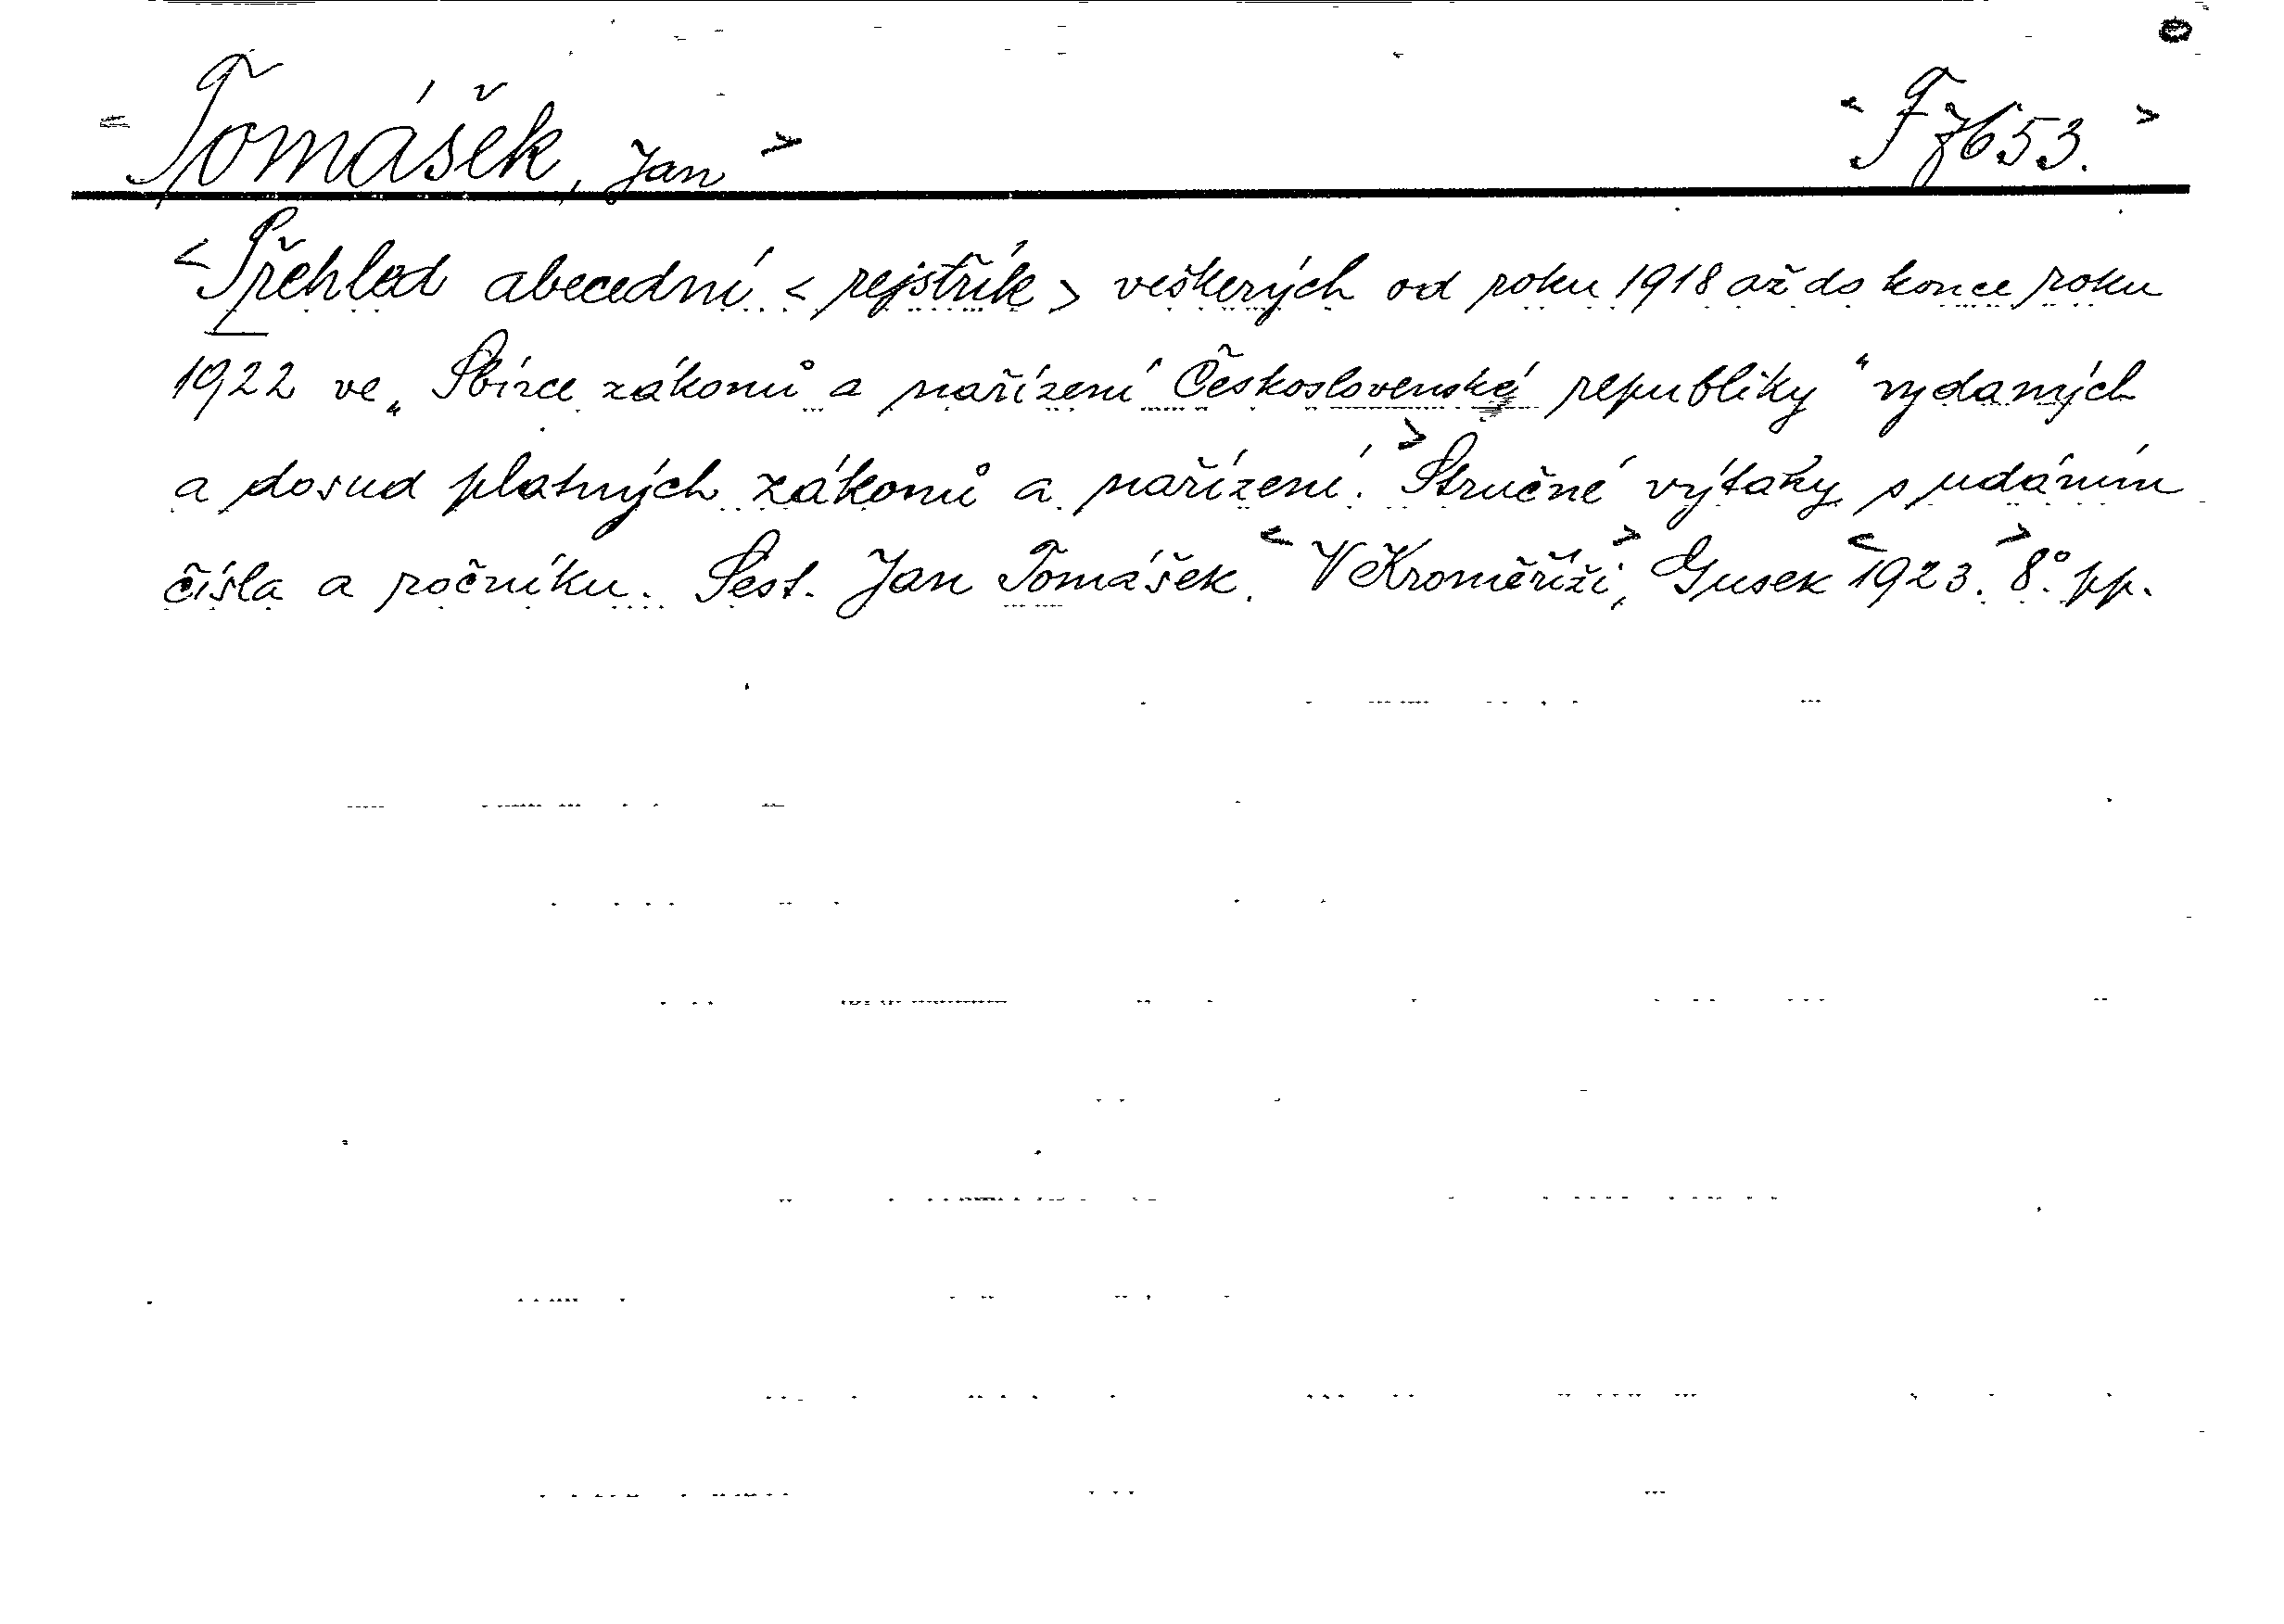 < Tomášek, Jan > < F 7653. >
< Přehled abecední < rejstřík > veškerých od roku 1918 až do konce roku
1922 ve „Sbírce zákonů a nařízení Československé republiky" vydaných
a dosud platných zákonů a nařízení. > Stručné výtahy s udáním
čísla a ročníku. Sest. Jan Tomášek. < V Kroměříži, > Gusek < 1923. > 8°. pp.